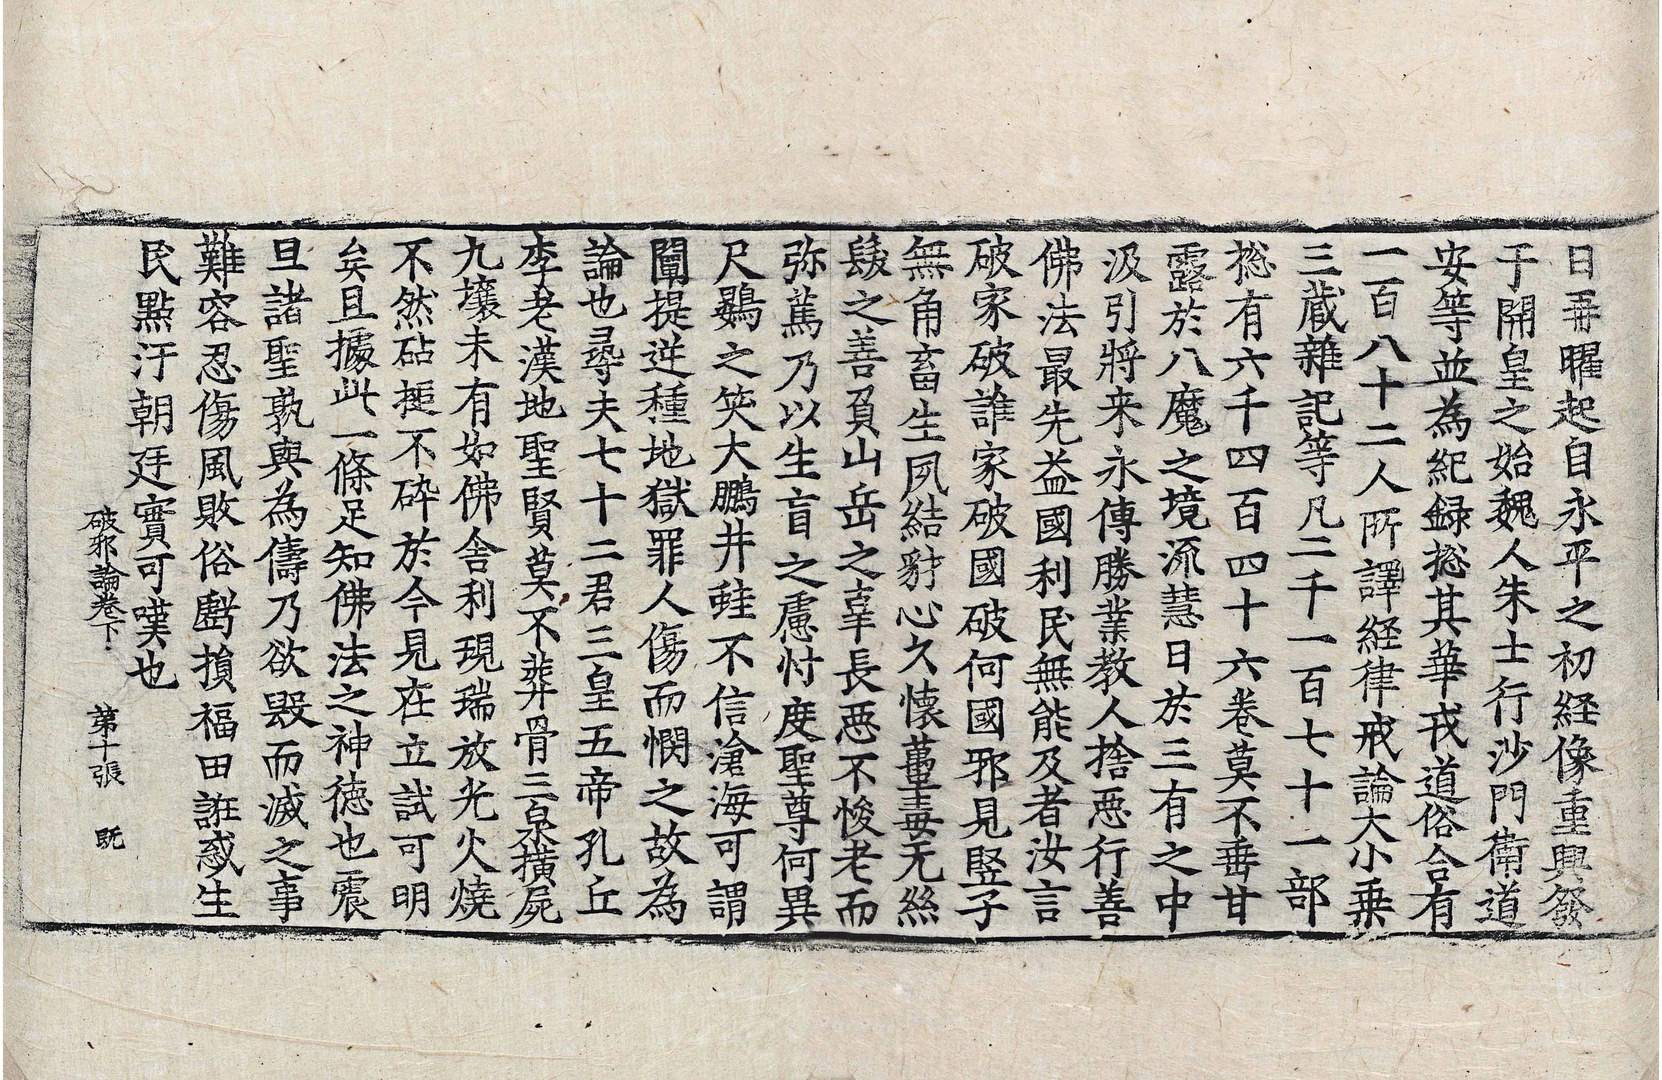 日再曜起自永平之初経像重興發
于開皇之始魏人朱士行沙門衛道
安等並為紀録捴其華戎道俗合有
一百八十二人所譯経律戒論大小乗
三藏雜記等凡二千一百七十一部
捴有六千四百四十六卷莫不垂甘
露於八魔之境流慧日於三有之中
汲引將来永傳勝業教人捨惡行善
佛法最先益國利民無能及者汝言
破家破誰家破國破何國邪見竪子
無角畜生夙結豺心久懐蠆毒无絲
髮之善負山岳之辜長惡不悛老而
弥篤乃以生盲之慮忖度聖尊何異
尺鷃之笑大鵬井蛙不信滄海可謂
闡提逆種地獄罪人傷而憫之故為
論也尋夫七十二君三皇五帝孔丘
李老漢地聖賢莫不葬骨三泉横屍
九壤未有如佛舍利現瑞放光火燒
不然砧搥不碎於今見在立試可明
矣且據此一條足知佛法之神德也震
旦諸聖孰與為儔乃欲毀而滅之事
難容忍傷風敗俗虧損福田誑惑生
民點汙朝廷實可嘆也
破邪論卷下　第十張　既